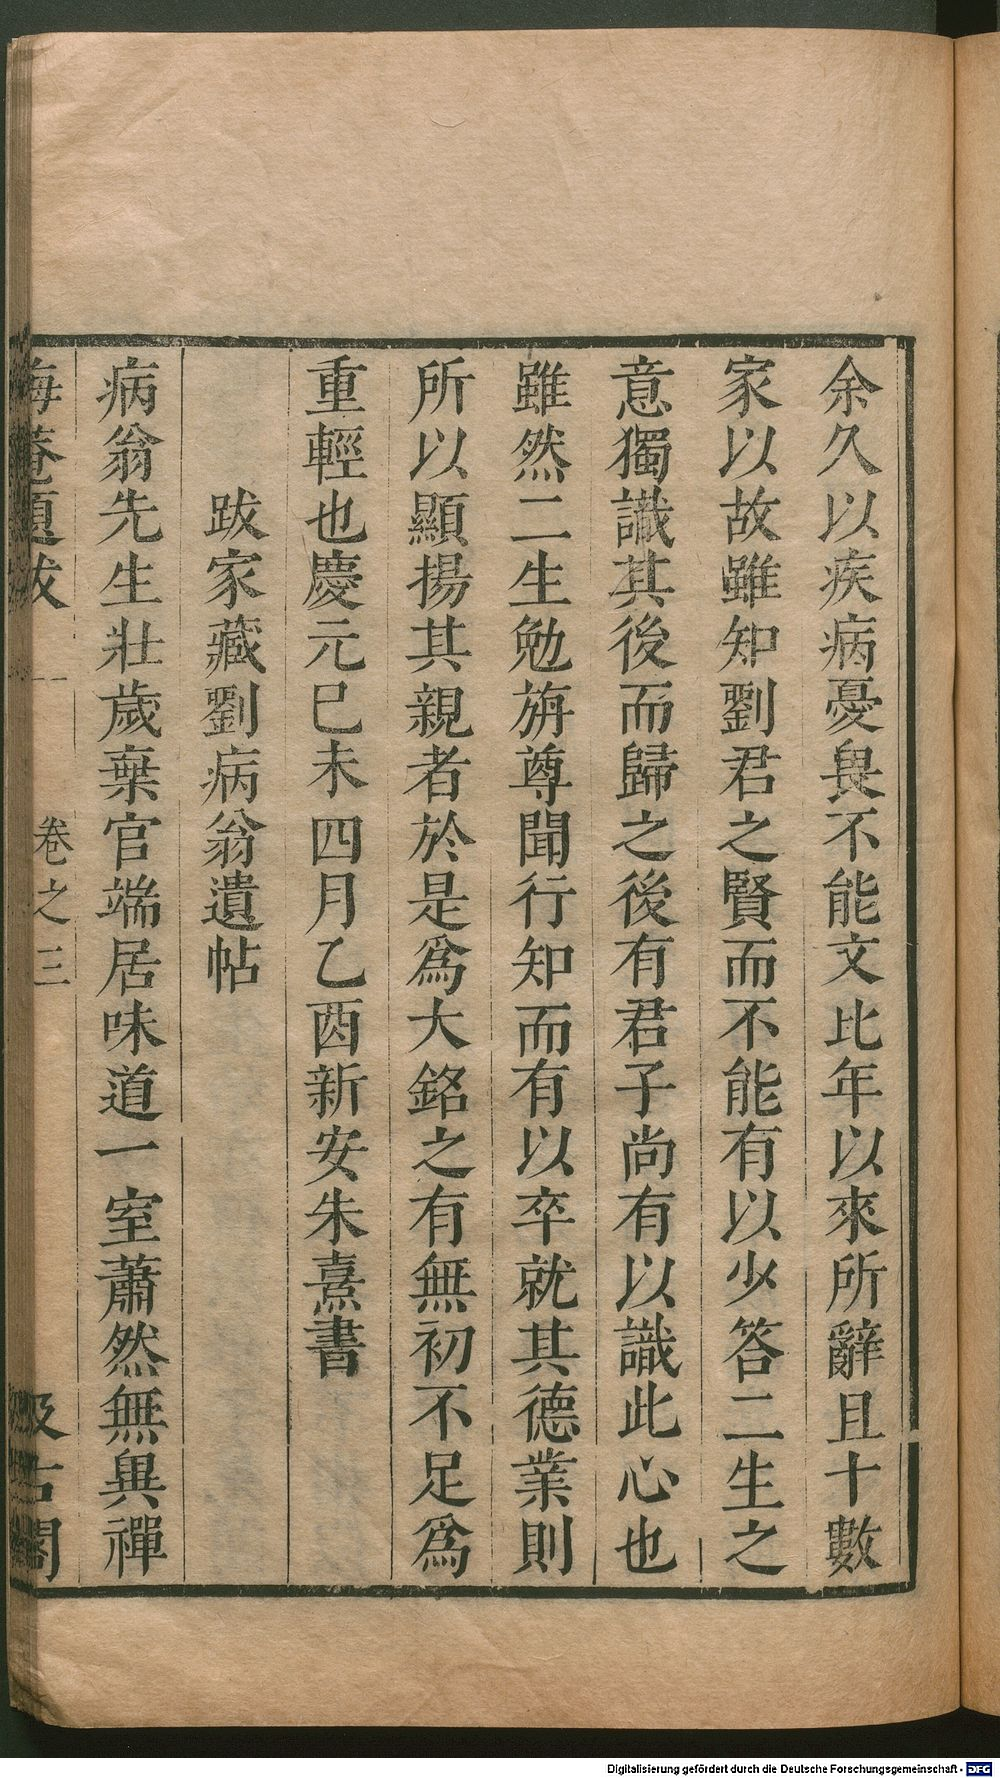 余久以疾病憂畏不能文比年以來所辭且十數
家以故雖知劉君之賢而不能有以少答二生之
意獨識其後而歸之後有君子尚有以識此心也
雖然二生勉旃尊聞行知而有以卒就其德業則
所以顯揚其親者於是爲大銘之有無初不足爲
重輕也慶元巳未四月乙酉新安朱熹書
跋家藏劉病翁遺帖
病翁先生壯歲棄官端居味道一室蕭然無異禪
晦菴題跋 卷之三 汲古閣
Digitalisierung gefördert durch die Deutsche Forschungsgemeinschaft - DFG